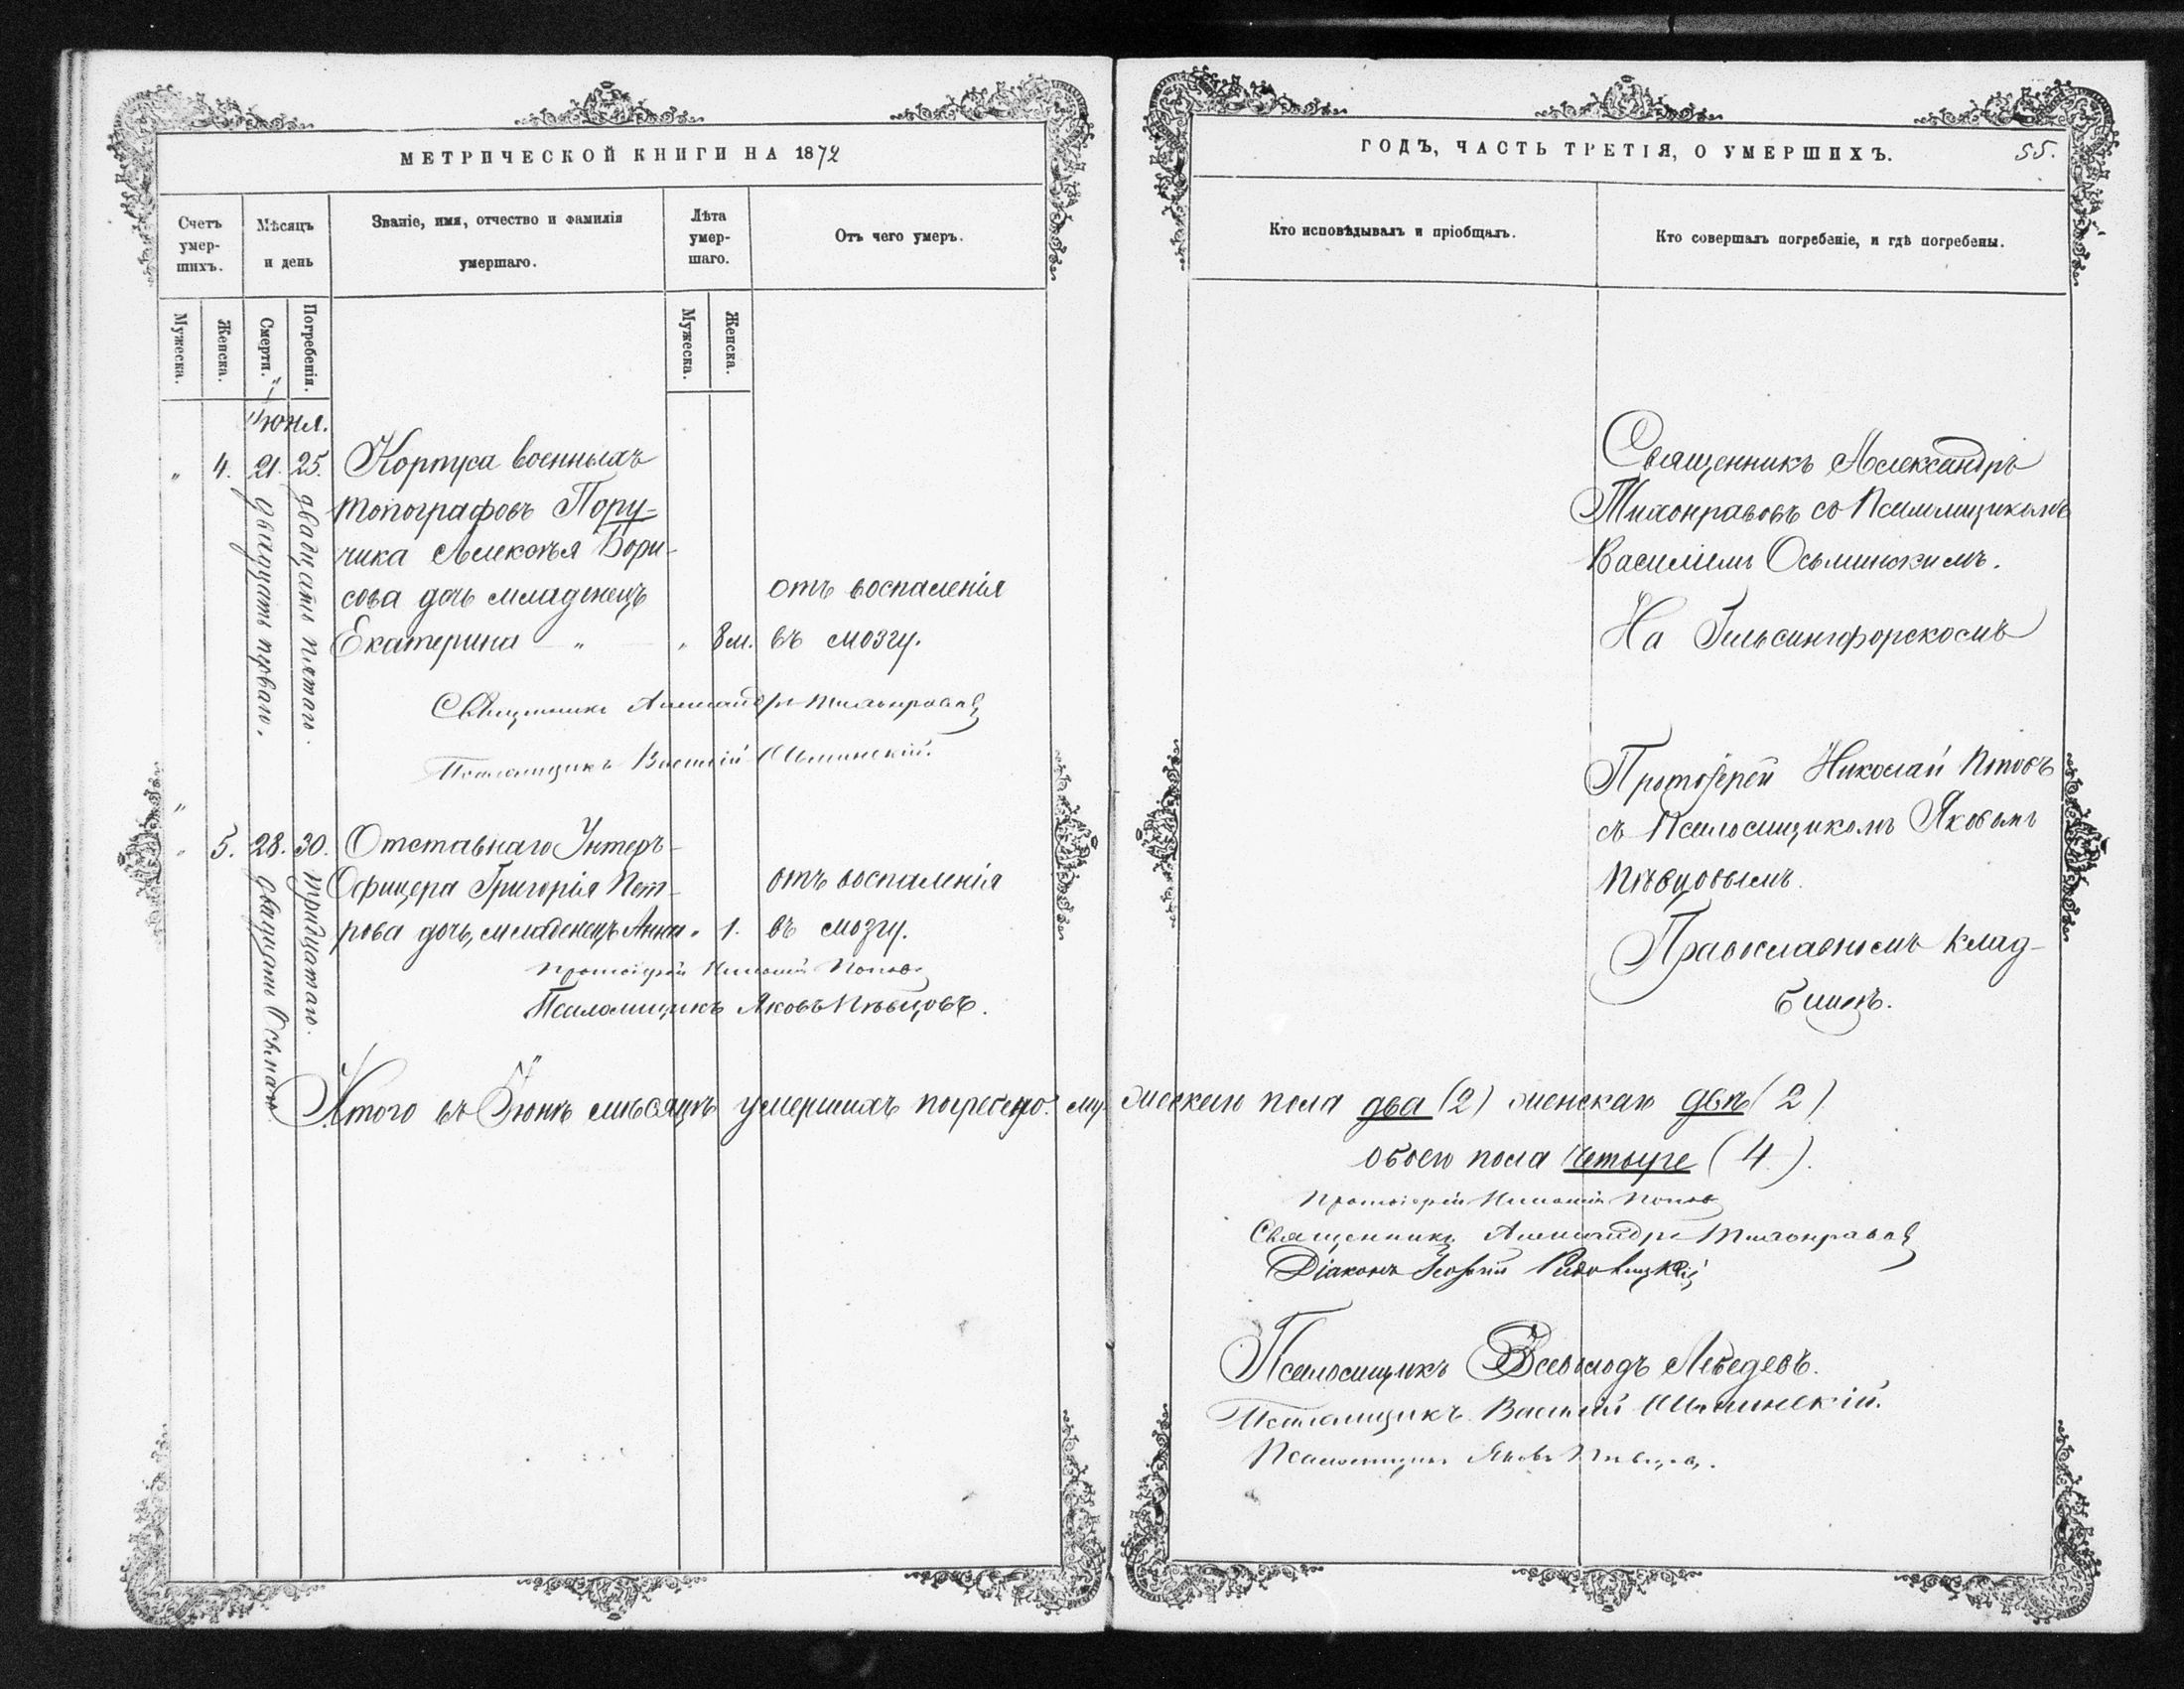 МЕТРИЧЕСКОЙ КНИГИ НА 1872
Счетъ умер-
шихъ.
Мѣсяцъ
и день
Званіе, имя, отчество и фамилія
умершаго.
Лѣта
умер-
шаго.
Отъ чего умеръ.
Мужеска.
Женска.
Смерти.
Погребенія.
Мужеска.
Женска.
Іюня.
" 4. 21. 25. Корпуса военныхъ
двадцать перваго.
двадцать пятаго.
топографовъ Пору-
чика Алексѣя Бори-
сова дочь младенецъ
Екатерина " " 8 м.
отъ воспаленія
въ мозгу.
Священникъ Александръ Тихонравовъ
Псаломщикъ Василій Осьминскій.
"
" 5. 28. 30. Отставнаго Унтеръ-
двадцать Осьмаго
тридцатаго.
Офицера Григорія Пет-
рова дочь, младенецъ Анна " 1.
отъ воспаленія
въ мозгу.
Протоіерей Николай Поповъ
Псаломщикъ Яковъ Пѣвцовъ.
Итого въ Іюнѣ мѣсяцѣ умершихъ погребено: му-
ГОДЪ, ЧАСТЬ ТРЕТІЯ, О УМЕРШИХЪ.
55.
Кто исповѣдывалъ и пріобщалъ.
Кто совершалъ погребеніе, и гдѣ погребены.
Священникъ Александръ
Тихонравовъ со Псаломщикомъ
Василіемъ Осьминскимъ.
На Гельсингфорскомъ
Протоіерей Николай Поповъ
съ Псаломщикомъ Яковомъ
Пѣвцовымъ.
Православномъ клад-
бищѣ.
жескаго пола два (2) женскаго двѣ (2)
обоего пола четыре (4).
Протоіерей Николай Поповъ
Священникъ Александръ Тихонравовъ
Діаконъ
Псаломщикъ Всеволодъ Лебедевъ.
Псаломщикъ Василій Осьминскій.
Псаломщикъ Яковъ Пѣвцовъ.